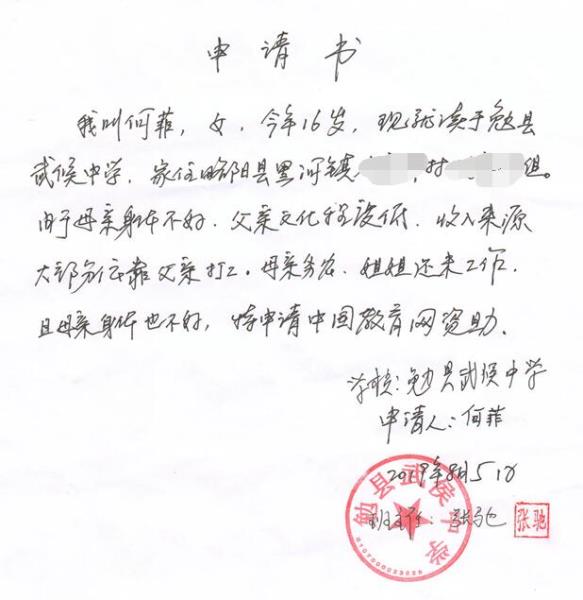 申请书
我叫何菲，女，今年16岁，现就读于勉县
武侯中学，家住略阳县黑河镇 村 组。
由于母亲身体不好，父亲文化程度低，收入来源
大部分依靠父亲打工。母亲务农，姐姐还未工作，
且母亲身体也不好，特申请中国教育网资助。
学校：勉县武侯中学
申请人：何菲
2019年8月5日
班主任：张驰
张驰
勉县武侯中学